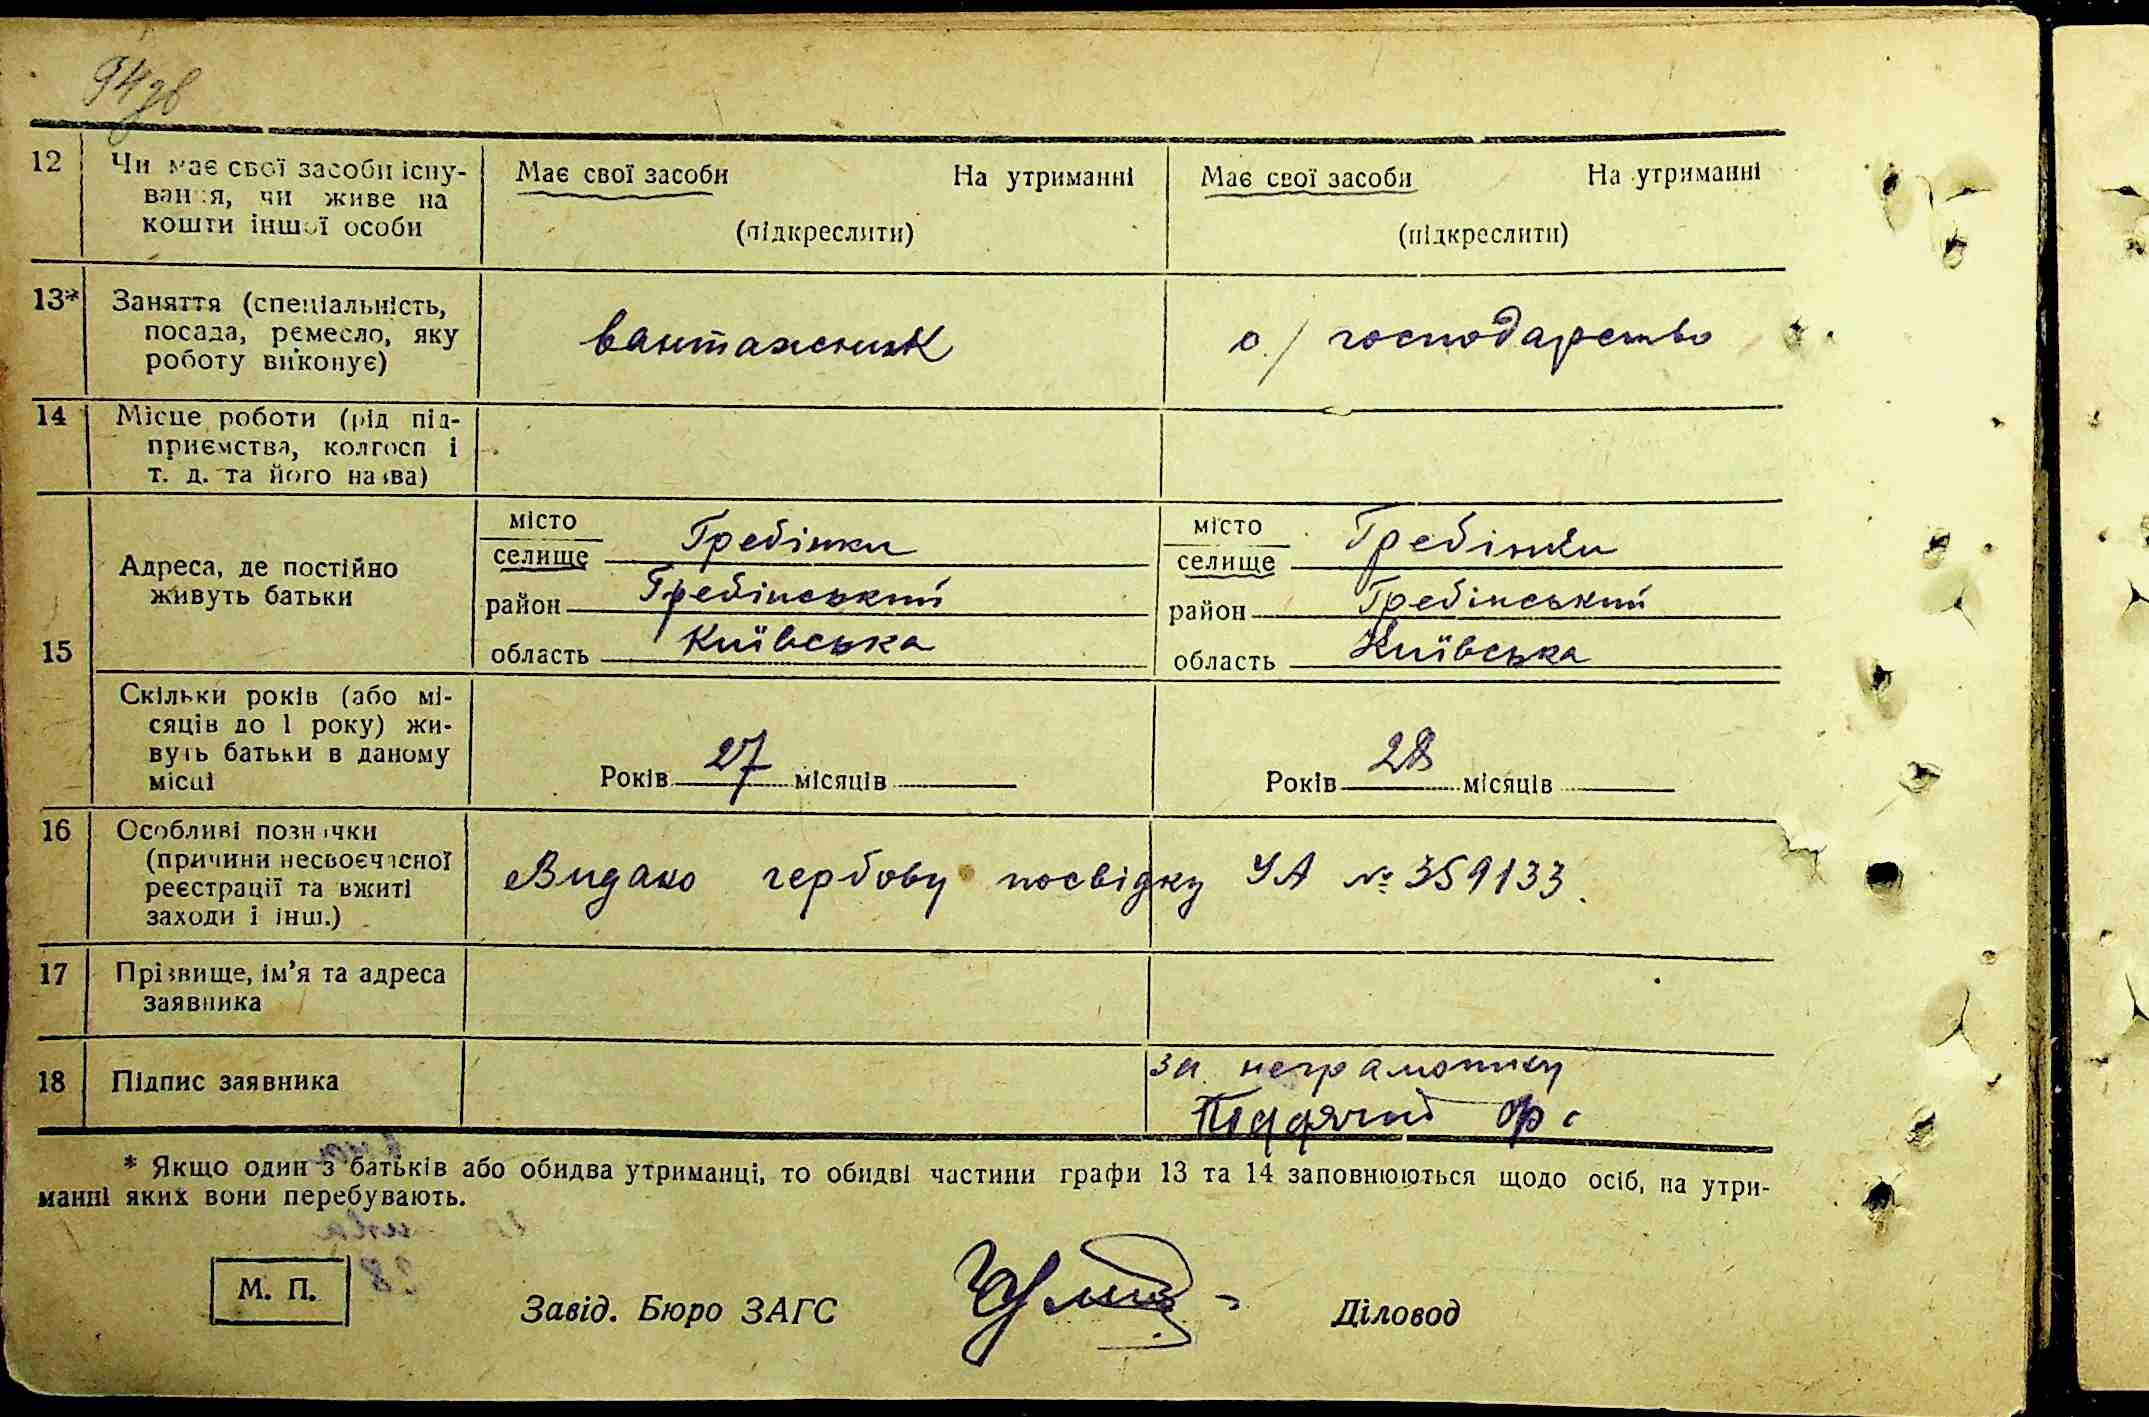 94зв
12 Чи має свої засоби існу-
вання, чи живе на
кошти іншої особи
Має свої засоби На утриманні
(підкреслити)
Має свої засоби На утриманні
(підкреслити)
13* Заняття (спеціальність,
посада, ремесло, яку
роботу виконує)
вантажник
о/господарство
14 Місце роботи (рід під-
приємства, колгосп і
т. д. та його назва)
15 Адреса, де постійно
живуть батьки
місто
селище Гребінки
район Гребінський
область Київська
місто
селище Гребінки
район Гребінський
область Київська
Скільки років (або мі-
сяців до 1 року) жи-
вуть батьки в даному
місці
Років 27 місяців
Років 28 місяців
16 Особливі позначки
(причини несвоєчасної
реєстрації та вжиті
заходи і інш.)
Видано гербову посвідку УА № 359133.
17 Прізвище, ім’я та адреса
заявника
18 Підпис заявника
за неграмотну
* Якщо один з батьків або обидва утриманці, то обидві частини графи 13 та 14 заповнюються щодо осіб, на утри-
манні яких вони перебувають.
М. П.
Завід. Бюро ЗАГС
Діловод